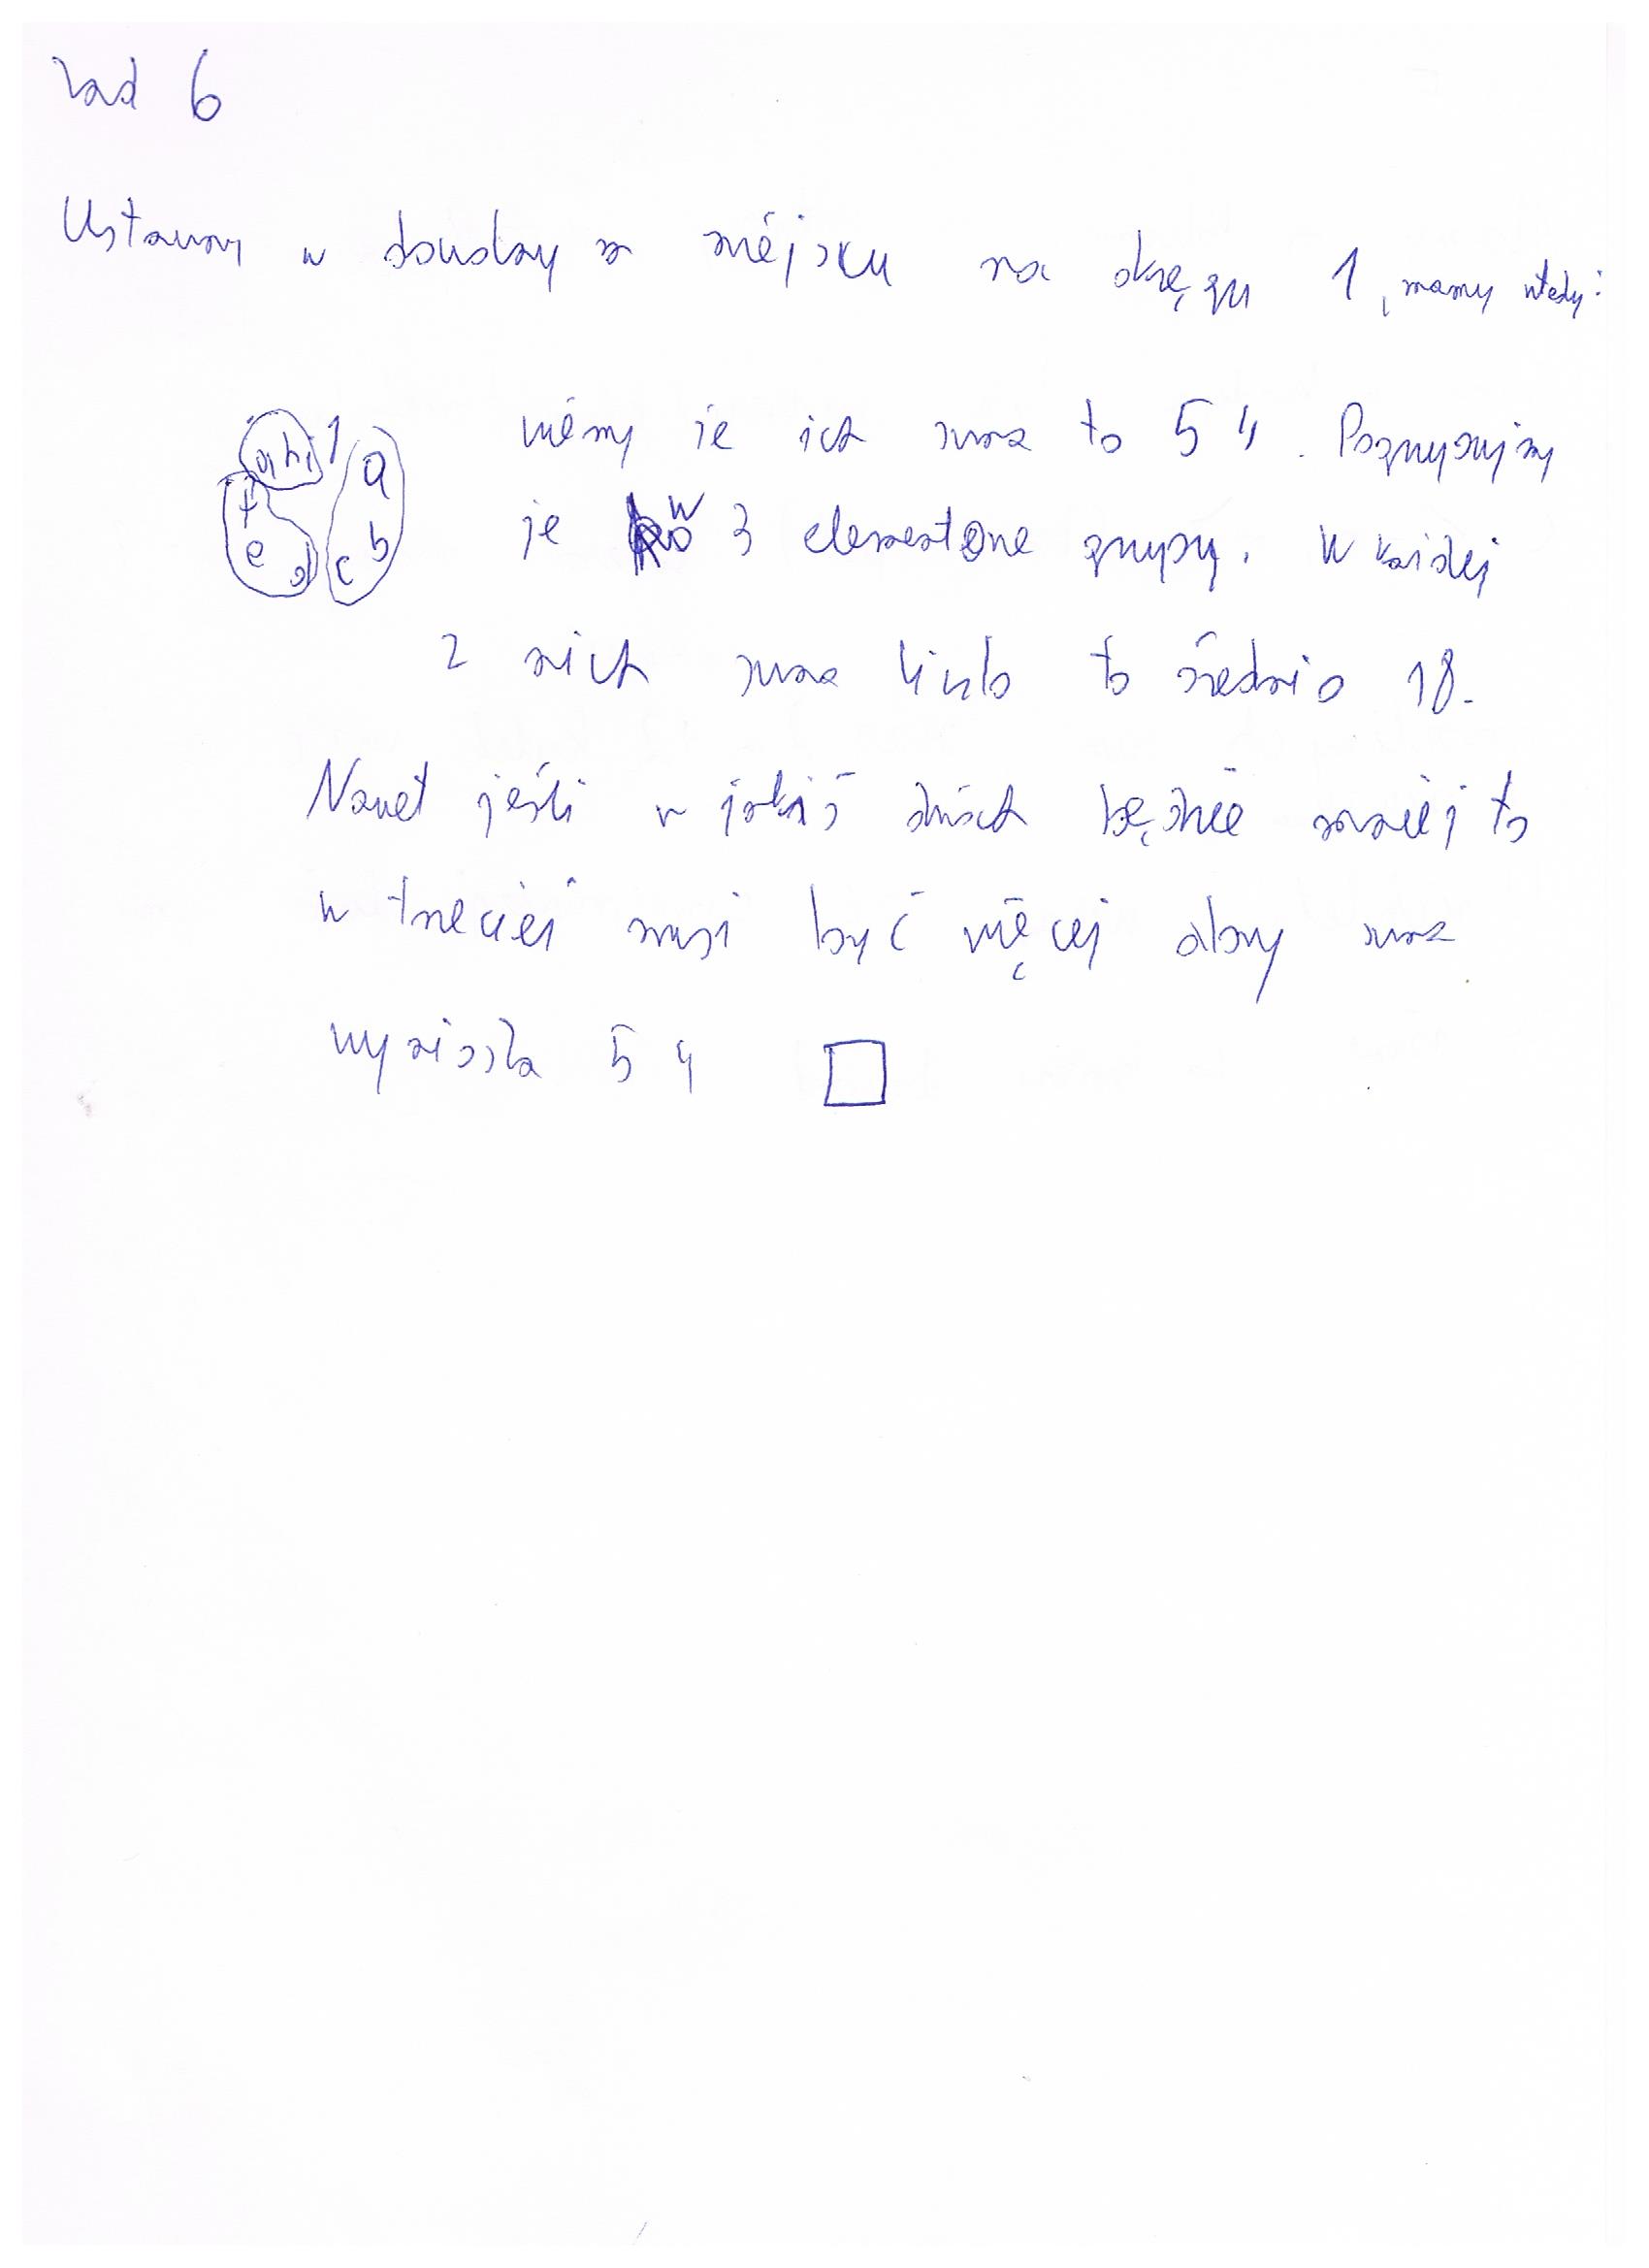 zad 6
Ustawmy w dowolnym miejscu na okręgu 1, mamy wtedy:
g h i 1 a
f
e b
d c
wiemy że ich suma to 54. Pogrupujmy
je w 3 elementowe grupy. W każdej
z nich suma liczb to średnio 18.
Nawet jeśli w jakiś dwóch będzie mniej to
w trzeciej musi być więcej aby suma
wyniosła 54